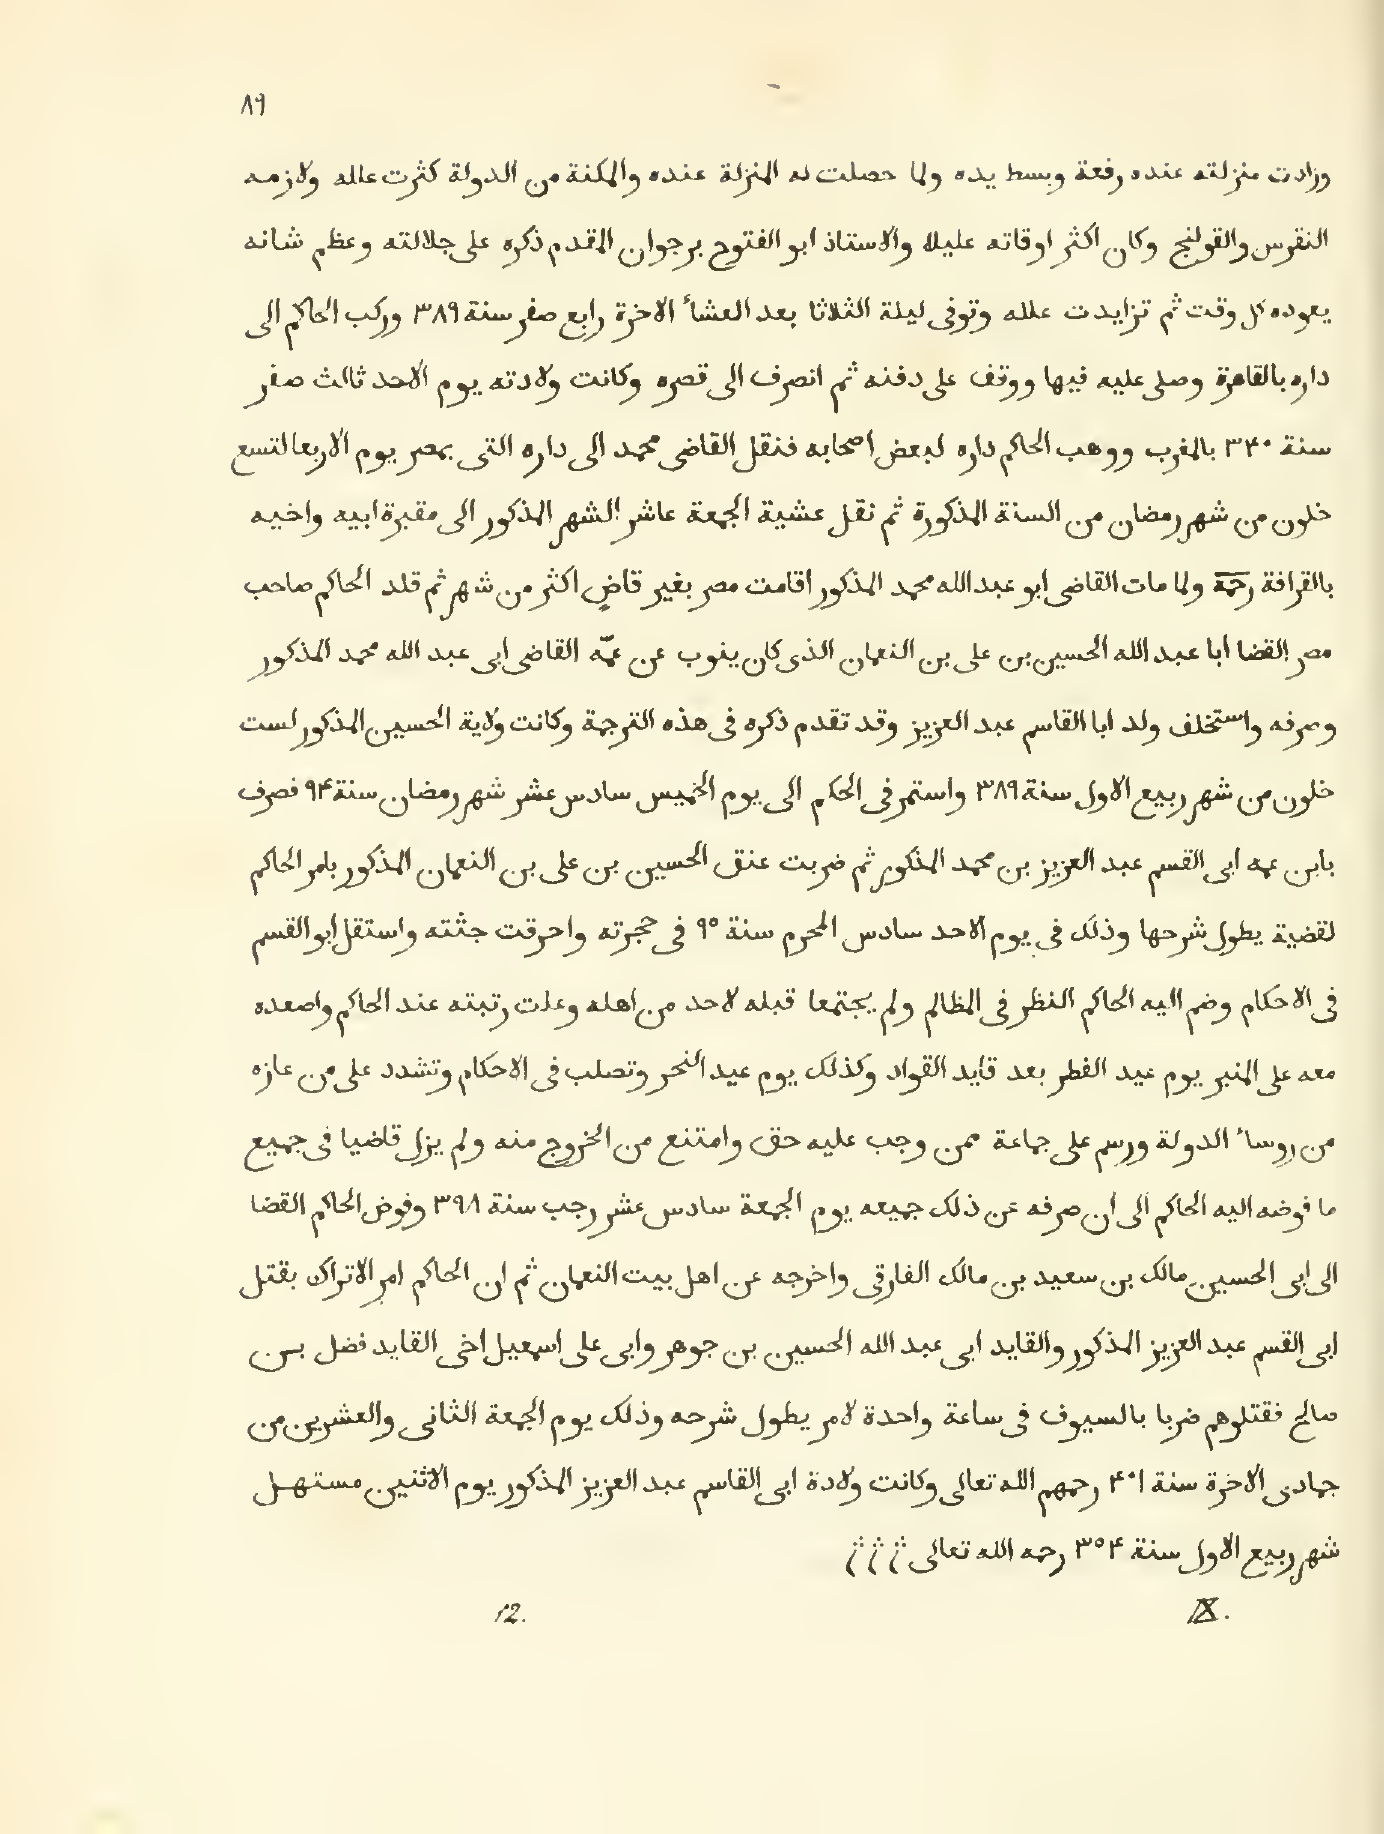 ٨٩
وزادت منزلته عنده رفعة وبسط يده ولما حصلت له المنزلة عنده والمكنة من الدولة كثرت علله ولازمه
النقرس والقولنج وكان اكثر اوقاته عليلا والاستاذ ابو الفتوح برجوان المقدم ذكره على جلالته وعظم شانه
يعوده كل وقت ثم تزايدت علله وتوفى ليلة الثلاثا بعد العشاء الاخرة رابع صفر سنة ٣٨٩ وركب الحاكم الى
داره بالقاهرة وصلى عليه فيها ووقف على دفنه ثم انصرف الى قصره وكانت ولادته يوم الاحد ثالث صفر
سنة ٣٤٠ بالمغرب ووهب الحاكم داره لبعض اصحابه فنقل القاضى محمد الى داره التى بمصر يوم الاربعا لتسع
خلون من شهر رمضان من السنة المذكورة ثم نقل عشية الجمعة عاشر الشهر المذكور الى مقبرة ابيه واخيه
بالقرافة رحمة ولما مات القاضى ابو عبد الله محمد المذكور اقامت مصر بغير قاضٍ اكثر من شهر ثم قلد الحاكم صاحب
مصر القضا ابا عبد الله الحسين بن على بن النعمان الذى كان ينوب عن عمّه القاضى ابى عبد الله محمد المذكور
وصرفه واستخلف ولد ابا القاسم عبد العزيز وقد تقدم ذكره فى هذه الترجمة وكانت ولاية الحسين المذكور لست
خلون من شهر ربيع الاول سنة ٣٨٩ واستمر فى الحكم الى يوم الخميس سادس عشر شهر رمضان سنة ٩٤ فصرف
بابن عمه ابى القسم عبد العزيز بن محمد المذكور ثم ضربت عنق الحسين بن على بن النعمان المذكور بامر الحاكم
لقضية يطول شرحها وذلك فى يوم الاحد سادس المحرم سنة ٩٥ فى حجرته واحرقت جثته واستقل ابو القسم
فى الاحكام وضم اليه الحاكم النظر فى المظالم ولم يجتمعا قبله لاحد من اهله وعلت رتبته عند الحاكم واصعده
معه على المنبر يوم عيد الفطر بعد قايد القواد وكذلك يوم عيد النحر وتصلب فى الاحكام وتشدد على من عازه
من روساء الدولة ورسم على جماعة ممن وجب عليه حق وامتنع من الخروج منه ولم يزل قاضيا فى جميع
ما فوضه اليه الحاكم الى ان صرفه عن ذلك جميعه يوم الجمعة سادس عشر رجب سنة ٣٩٨ وفوض الحاكم القضا
الى ابى الحسين مالك بن سعيد بن مالك الفارقى واخرجه عن اهل بيت النعمان ثم ان الحاكم امر الاتراك بقتل
ابى القسم عبد العزيز المذكور والقايد ابى عبد الله الحسين بن جوهر وابى على اسمعيل اخى القايد فضل بن
صالح فقتلوهم ضربا بالسيوف فى ساعة واحدة لامر يطول شرحه وذلك يوم الجمعة الثانى والعشرين من
جمادى الاخرة سنة ٤٠١ رحمهم الله تعالى وكانت ولادة ابى القاسم عبد العزيز المذكور يوم الاثنين مستهل
شهر ربيع الاول سنة ٣٥٤ رحمه الله تعالى
IX. 12.